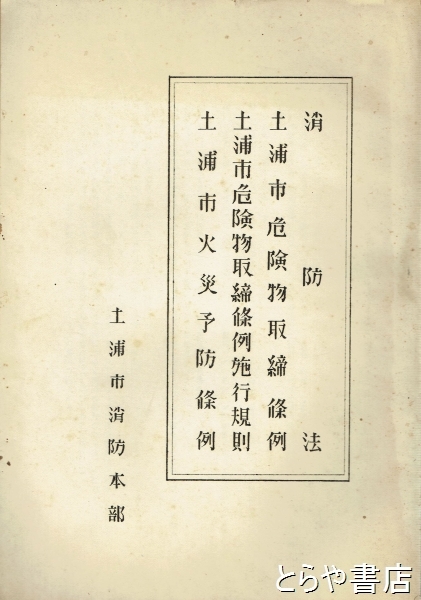 消防法
土浦市危険物取締條例
土浦市危険物取締條例施行規則
土浦市火災予防條例
土浦市消防本部
とらや書店